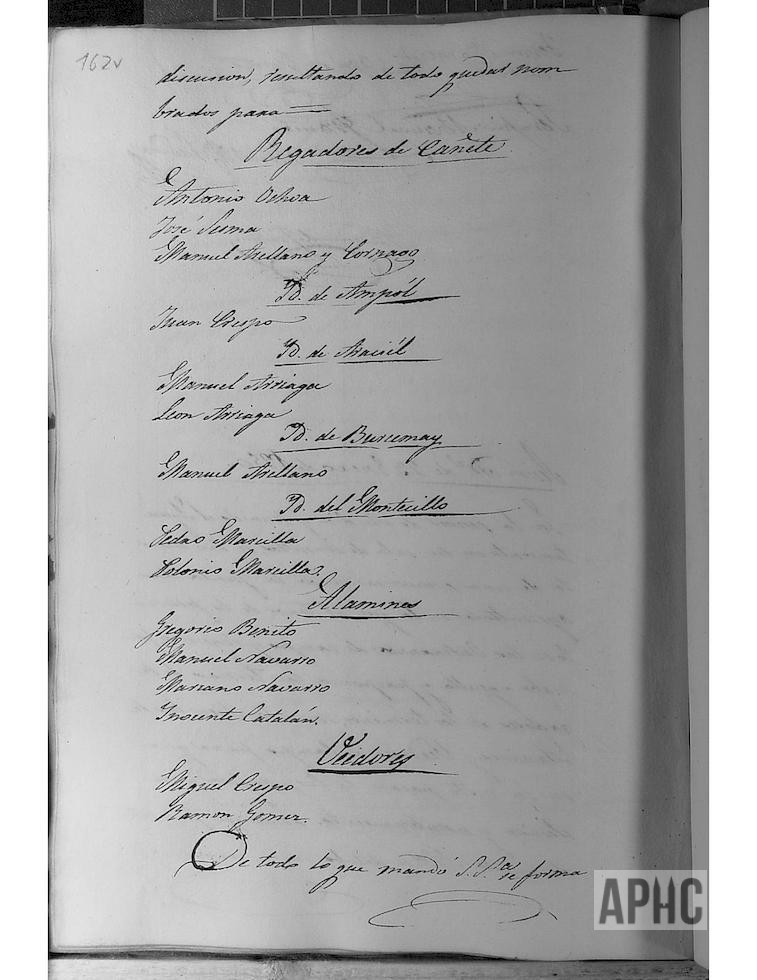 162v
discusion, resultando de todo quedar nom
brados para=
Regadores de Cañete
Antonio Ochoa
José Sesma
Manuel Arellano y Cornago
Yd. de Ampól
Juan Crespo
Yd. de Araciél
Manuel Arriaga
Leon Arriaga
Yd. de Burcemay
Manuel Arellano
Yd. del Montecillo
Pedro Marcilla
Polonio Marcilla.
Alamines
Gregorio Benito
Manuel Navarro
Mariano Navarro
Ynocente Catalán.
Veedores
Miguel Crespo
Ramon Gomez.
De todo lo que mandó S. Sª se forma
APHC